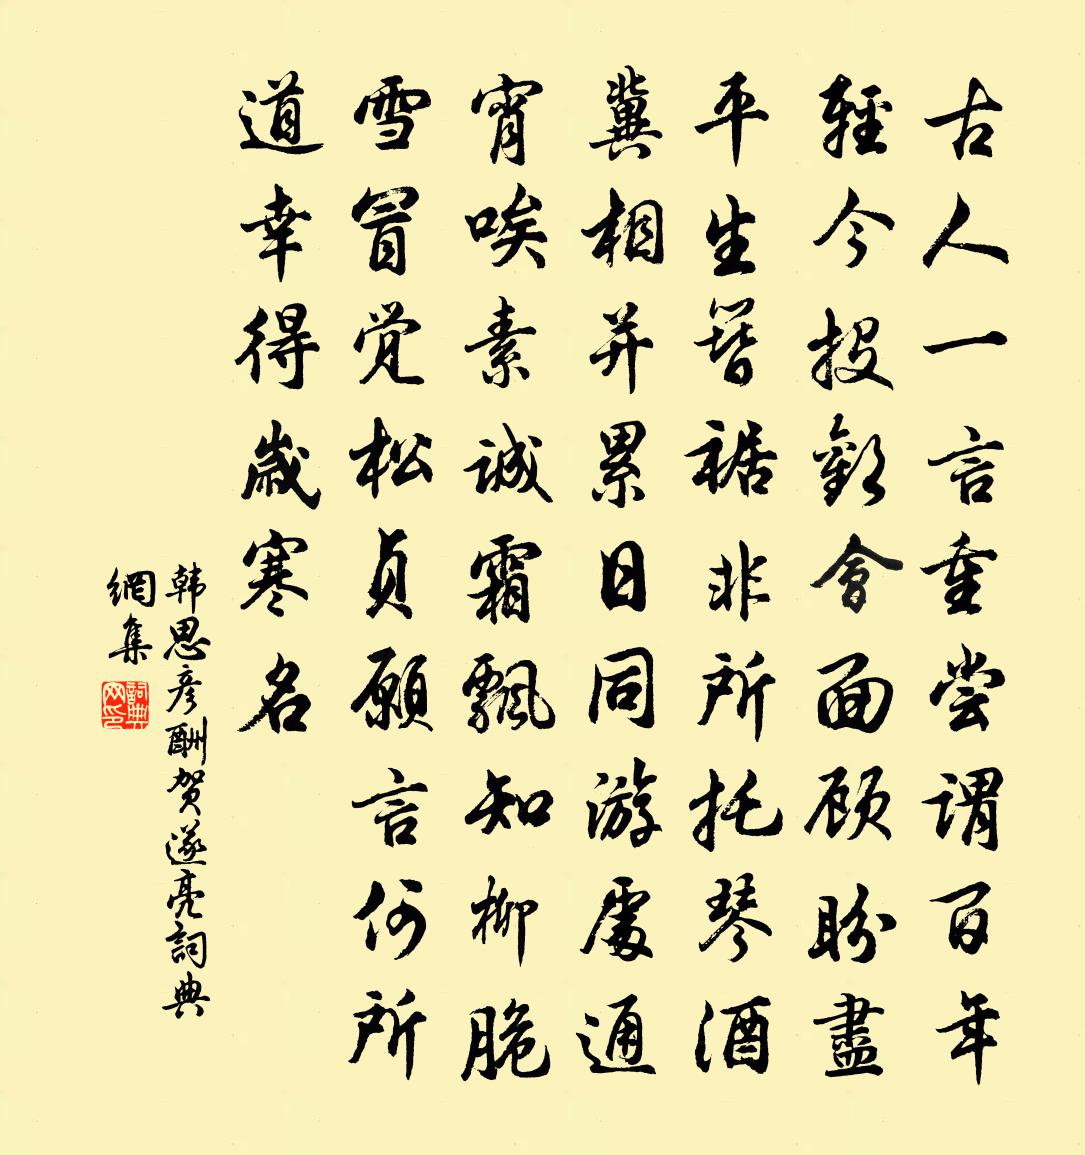 古人一言重尝谓百年
輕今投歡會面顾盼盡
平生簪裾非所托琴酒
冀相并累日同游處通
宵唉素诚霜飄知柳脆
雪冒觉松贞願言何所
道幸得歲寒名
韩思彦酬贺遂亮詞典
網集
詞典
网印